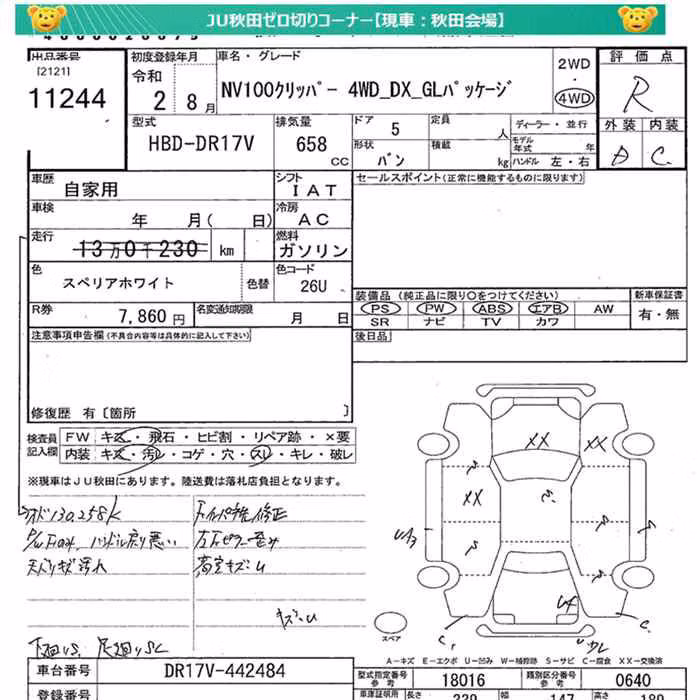 JU秋田ゼロ切りコーナー【現車:秋田会場】
出品番号 [2121] 11244
初度登録年月 令和 2年 8月
車名・グレード NV100クリッパー 4WD_DX_GLパッケージ
2WD・4WD
評価点 R
外装 内装 C
型式 HBD-DR17V
排気量 658 CC
ドア 5
形状 バン
定員 人
積載 kg
ディーラー・並行
モデル年式 年
ハンドル 左・右
車歴 自家用
シフト IAT
セールスポイント(正常に機能するものに限ります)
車検 年 月( 日)
冷房 AC
走行 13万0千230 km
燃料 ガソリン
色 スペリアホワイト 色替
色コード 26U
R券 7,860円
名変通知期限 月 日
装備品 (純正品に限り○をつけてください)
PS PW ABS エアB AW
SR ナビ TV カワ
新車保証書 有・無
後日品
注意事項申告欄(不具合内容等は具体的に記入して下さい)
修復歴 有 [箇所 ]
検査員記入欄
FW キズ・飛石・ヒビ割・リペア跡・×要
内装 キズ・汚レ・コゲ・穴・スレ・キレ・破レ
※現車はJU秋田にあります。陸送費は落札店負担となります。
130,258k
ハンドル戻り悪い
XX XX
XX
スペア
A-キズ E-エクボ U-凹み W-補修跡 S-サビ C-腐食 XX-交換済
車台番号 DR17V-442484
型式指定番号 参考 18016
類別区分番号 参考 0640
登録番号
車庫証明用 長さ 339 幅 147 高さ 189